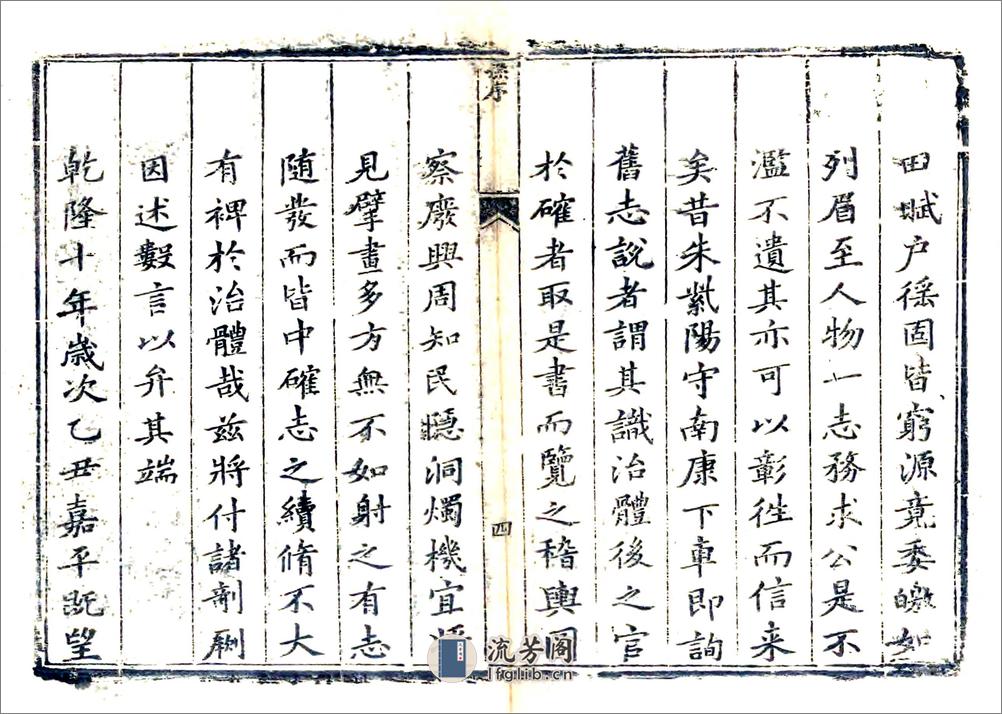 田賦户徭固皆窮源竟委皦如
列眉至人物一志務求公是不
濫不遺其亦可以彰徃而信来
矣昔朱紫陽守南康下車即詢
舊志説者謂其識治體後之官
於確者取是書而覽之稽輿圖
序
四
察廢興周知民隱洞燭機宜將
見擘畫多方無不如射之有志
随發而皆中確志之續脩不大
有裨於治體哉兹將付諸剞劂
因述數言以弁其端
乾隆十年嵗次乙丑嘉平既望
流芳阁
lfglib.cn